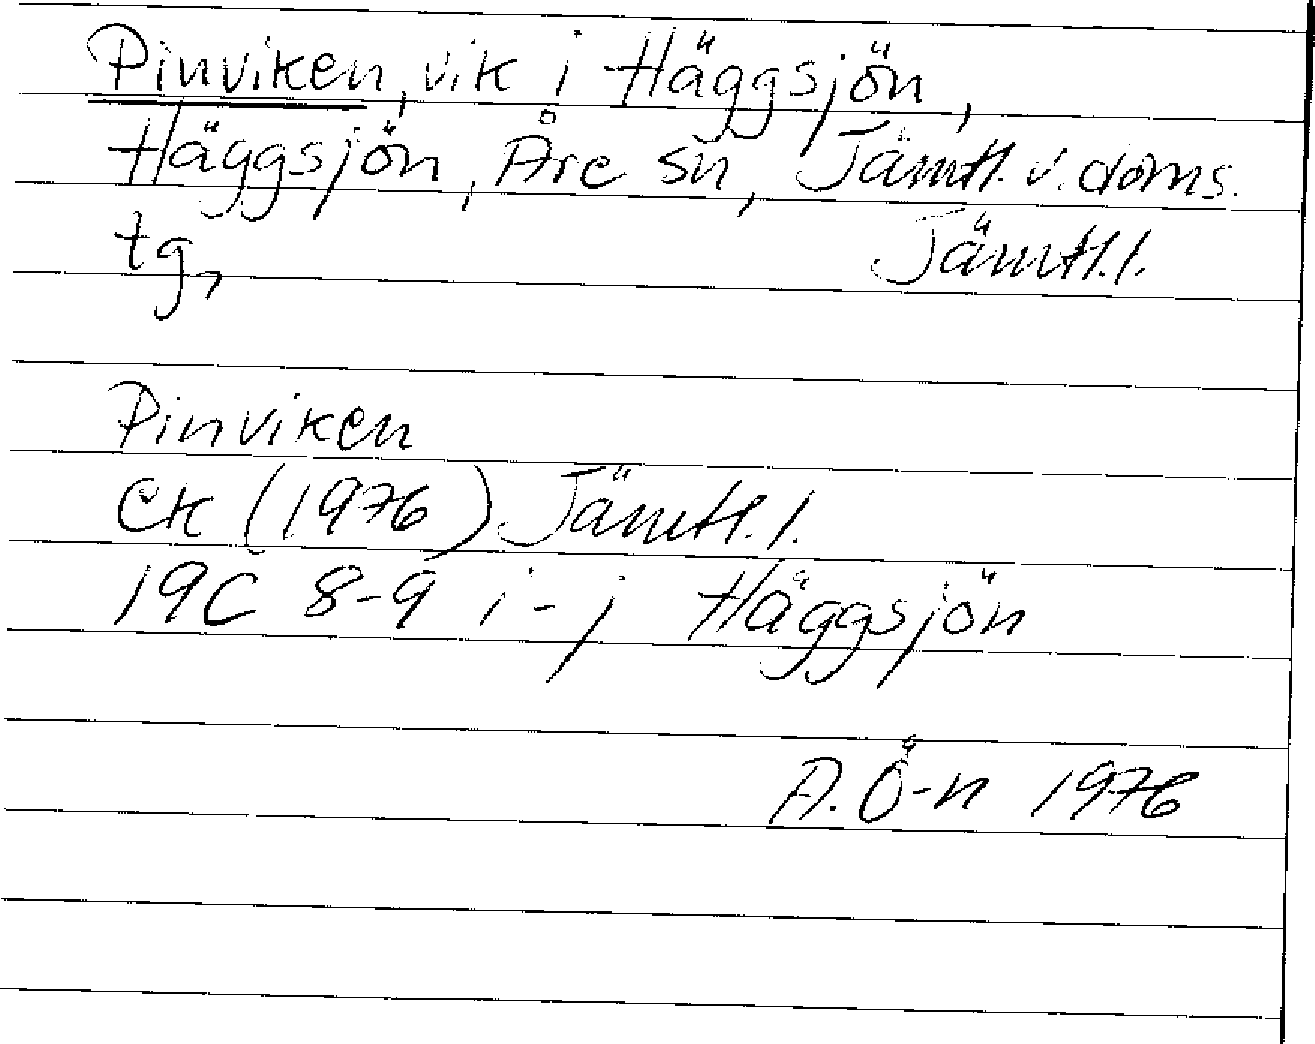 Pinviken, vik i Häggsjön,
Häggsjön, Åre sn, Jämtl. v. doms.
tg, Jämtl. l.
Pinviken
EK (1976) Jämtl. l.
19C 8-9 i-j Häggsjön
A. Ö-n 1976